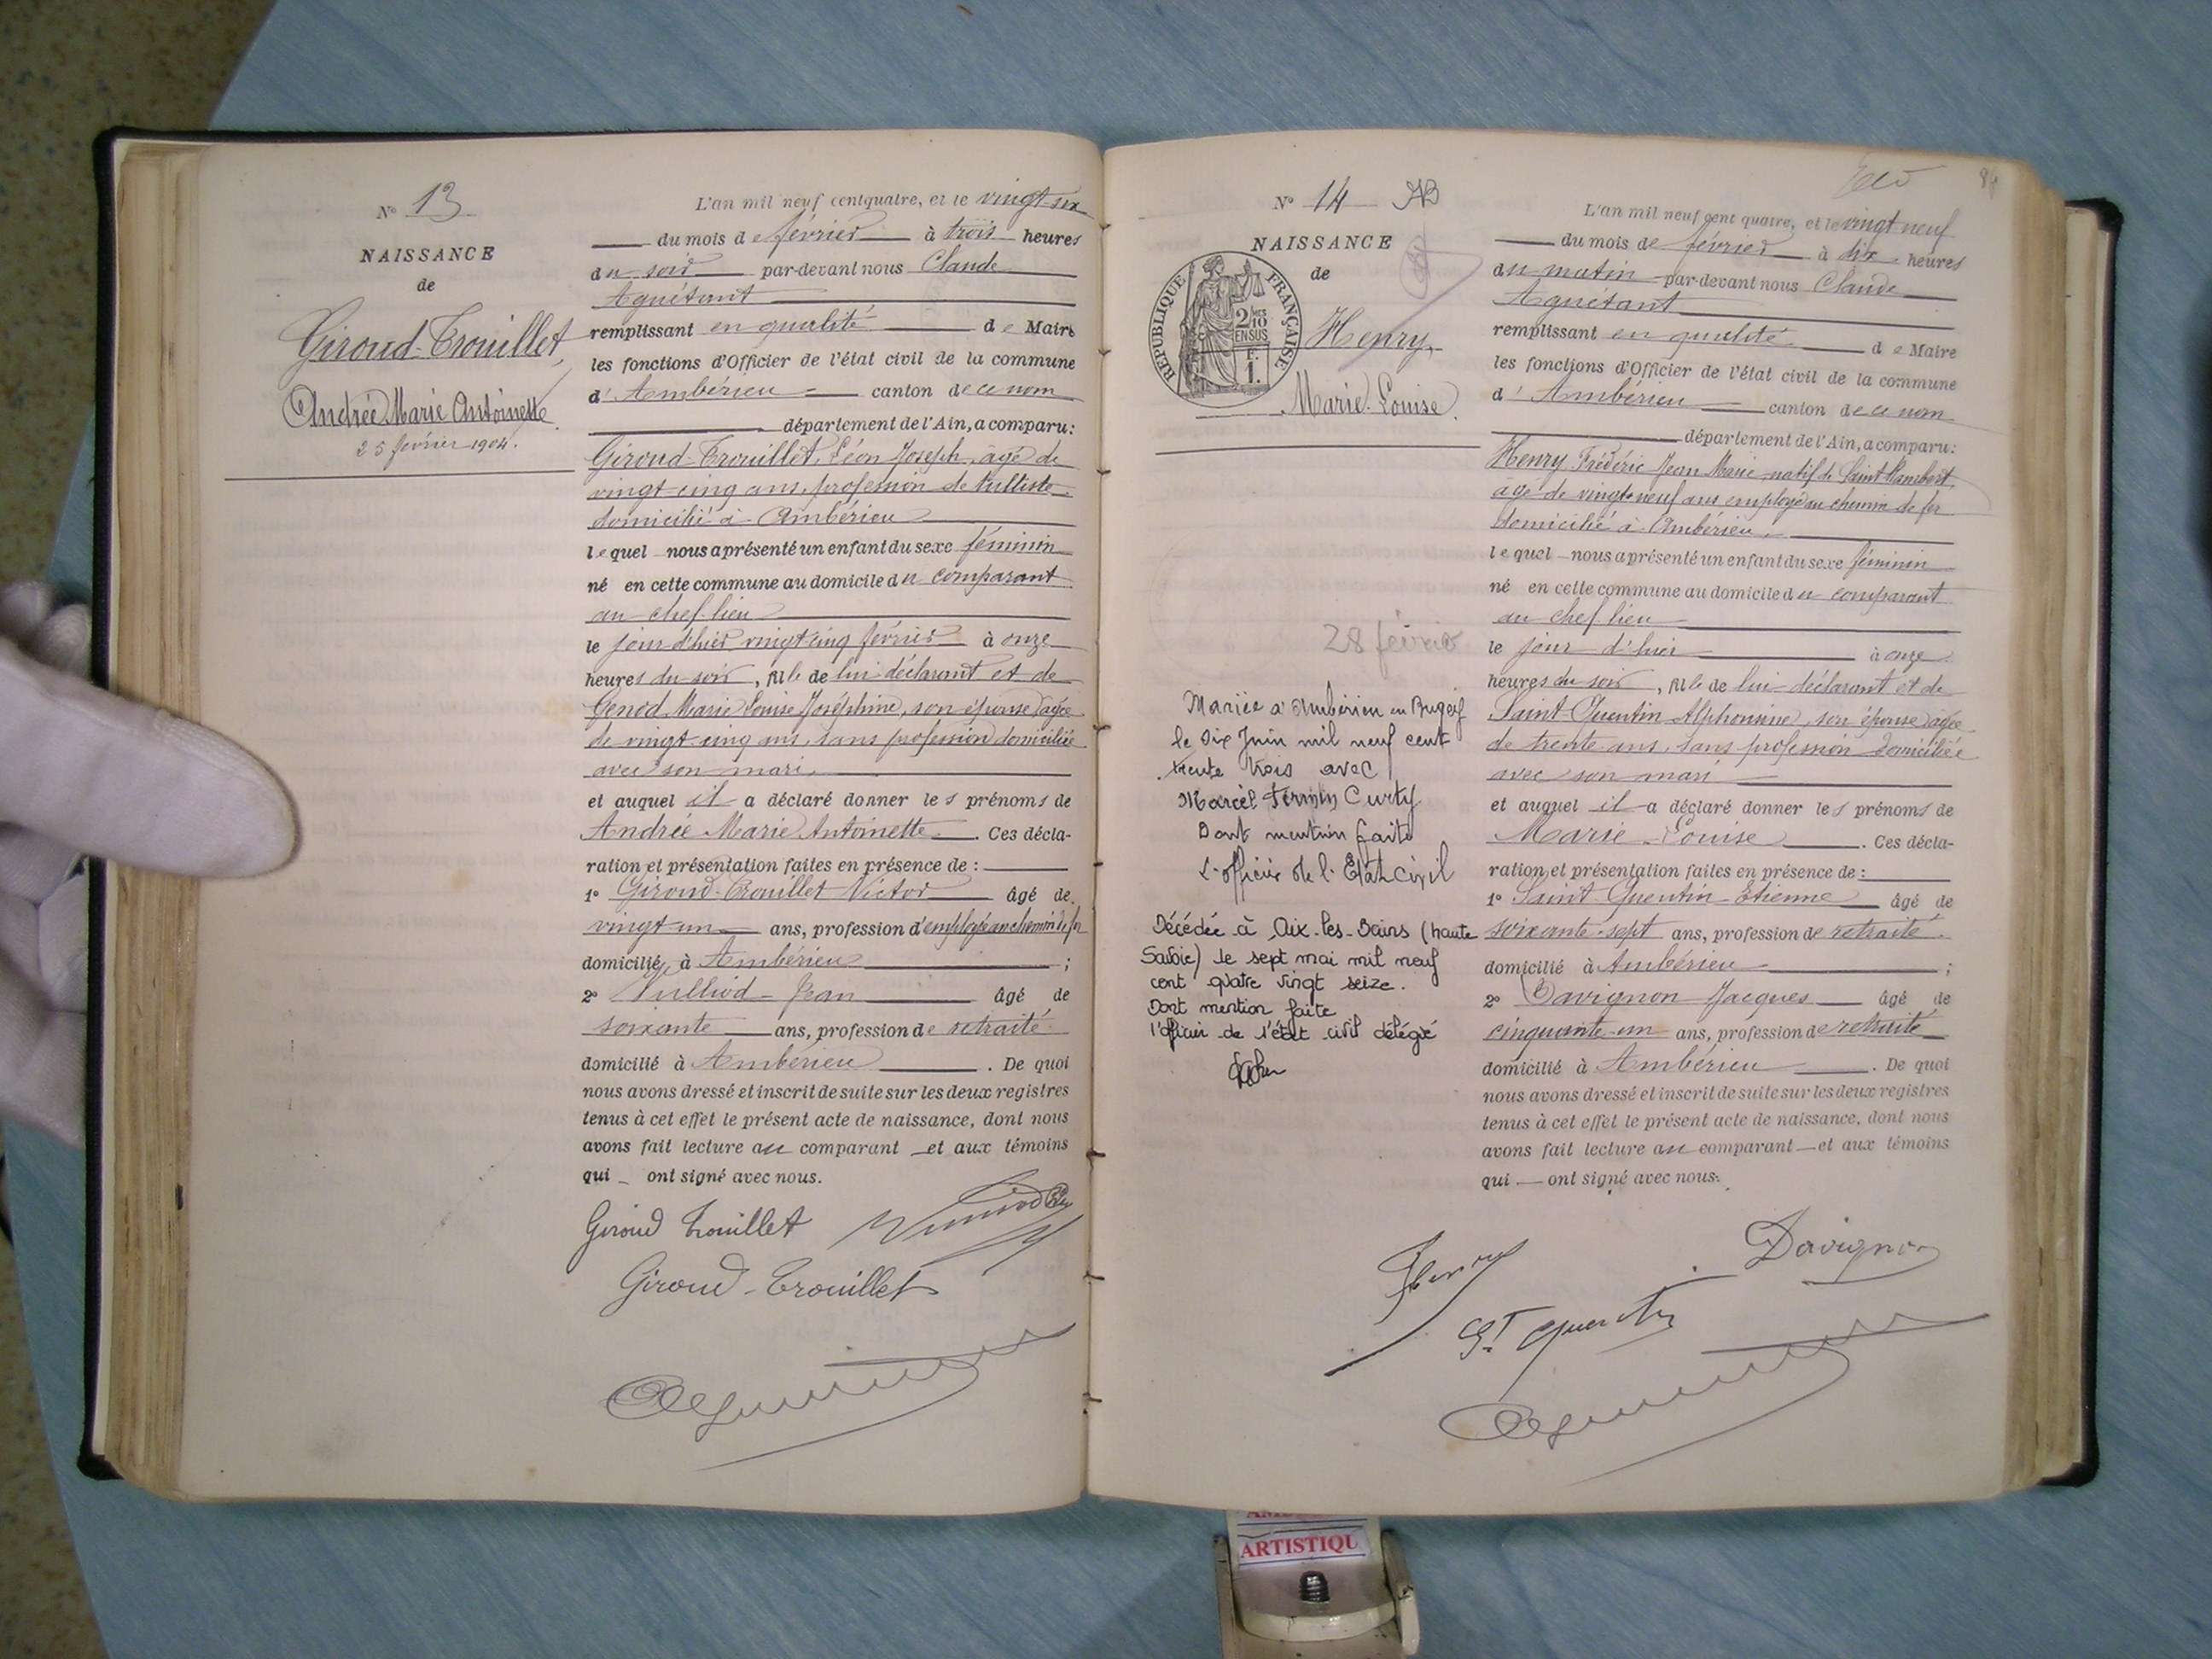 N° 13
NAISSANCE
de
Giroud-Trouillet,
Andrée Marie Antoinette
25 février 1904.
L'an mil neuf cent quatre, et le vingt-six
du mois de février à trois heures
du soir par-devant nous Claude
Aguétant
remplissant en qualité de Maire
les fonctions d'Officier de l'état civil de la commune
d'Ambérieu canton de ce nom
département de l'Ain, a comparu:
Giroud-Trouillet, Léon Joseph, âgé de
vingt-cinq ans, profession de tulliste
domicilié à Ambérieu
lequel nous a présenté un enfant du sexe féminin
né en cette commune au domicile du comparant
au chef lieu
le jour d'hier vingt cinq février à onze
heures du soir, fille de lui déclarant et de
Genod Marie Louise Joséphine, son épouse, âgée
de vingt-cinq ans, sans profession domiciliée
avec son mari,
et auquel il a déclaré donner les prénoms de
Andrée Marie Antoinette. Ces décla-
ration et présentation faites en présence de :
1° Giroud-Trouillet Victor âgé de
vingt-un ans, profession d'employé au chemin de fer
domicilié à Ambérieu ;
2° Vulliod Jean âgé de
soixante ans, profession de retraité
domicilié à Ambérieu. De quoi
nous avons dressé et inscrit de suite sur les deux registres
tenus à cet effet le présent acte de naissance, dont nous
avons fait lecture au comparant et aux témoins
qui ont signé avec nous.
Giroud Trouillet
Giroud-Trouillet
N° 14
NAISSANCE
de
REPUBLIQUE FRANÇAISE
2/10
EN SUS
F.
1.
Henry,
Marie-Louise.
28 février
Mariée à Ambérieu en Bugey
le dix Juin mil neuf cent
trente trois avec
Marcel Firmin Curty
Dont mention faite
L'officier de l'Etat civil
Décédée à Aix-les-Bains (haute
Savoie) le sept mai mil neuf
cent quatre vingt seize.
Dont mention faite
l'officier de l'état civil délégué
84
L'an mil neuf cent quatre, et le vingt neuf
du mois de février à dix heures
du matin par-devant nous Claude
Aguétant
remplissant en qualité de Maire
les fonctions d'Officier de l'état civil de la commune
d'Ambérieu canton de ce nom
département de l'Ain, a comparu:
Henry Frédéric Jean Marie natif de Saint Rambert,
âgé de vingt-neuf ans employé au chemin de fer
domicilié à Ambérieu,
lequel nous a présenté un enfant du sexe féminin
né en cette commune au domicile du comparant
au chef lieu
le jour d'hier à onze
heures du soir, fille de lui déclarant et de
Saint-Quentin Alphonsine, son épouse, âgée
de trente ans, sans profession domiciliée
avec son mari
et auquel il a déclaré donner les prénoms de
Marie-Louise. Ces décla-
ration et présentation faites en présence de :
1° Saint Quentin Etienne âgé de
soixante-sept ans, profession de retraité
domicilié à Ambérieu ;
2° Davignon Jacques âgé de
cinquante-un ans, profession de retraité
domicilié à Ambérieu. De quoi
nous avons dressé et inscrit de suite sur les deux registres
tenus à cet effet le présent acte de naissance, dont nous
avons fait lecture au comparant et aux témoins
qui ont signé avec nous.
Henry
Davignon
St Quentin
ARTISTIQU